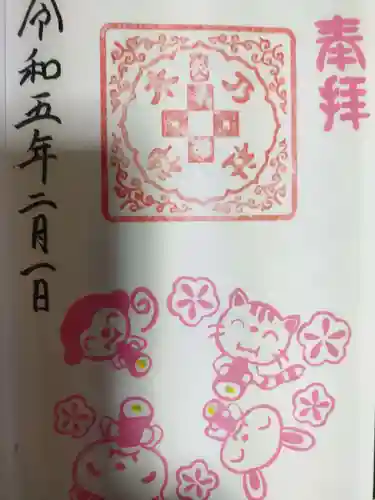 奉拝
令和五年二月一日